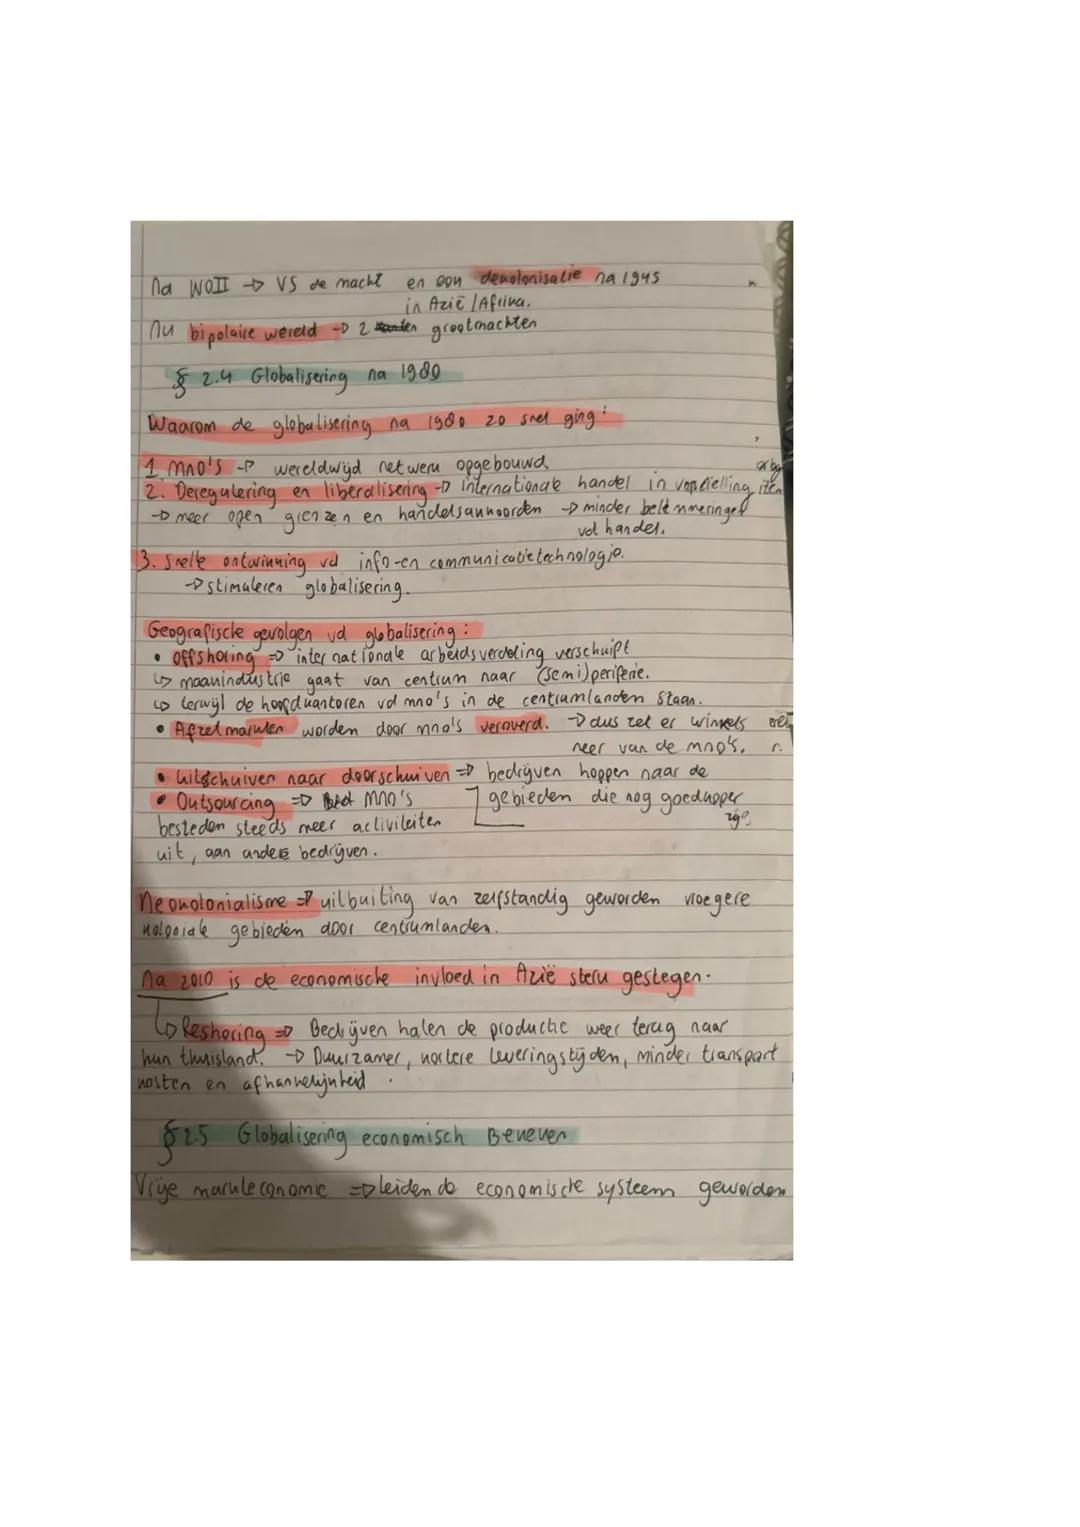 Na WOII → VS de macht en ook dekolonisatie na 1945
in Azië / Afrika.
Nu bipolaire wereld → 2 grootmachten
§ 2.4 Globalisering na 1980
Waarom de globalisering na 1980 zo snel ging:
1 mno's → wereldwijd netwerk opgebouwd
2. Deregulering en liberalisering → internationale handel in
→ meer open grenzen en handelsakkoorden → minder belemmeringen
vd handel.
3. Snelle ontwikking vd info-en communicatietechnologie.
→ stimuleren globalisering.
Geografische gevolgen vd globalisering:
• offshoring ⇒ internationale arbeidsverdeling verschuift
↳ maakindustrie gaat van centrum naar (semi)periferie.
↳ terwijl de hoofdkantoren vd mno's in de centrumlanden staan.
• Afzetmarkten worden door mno's veroverd. → dus zet er winkels
neer van de mno's.
• Uitschuiven naar doorschuiven ⇒ bedrijven hoppen naar de
gebieden die nog goedkoper
zijn
• Outsourcing ⇒ MNO's
besteden steeds meer activiteiten
uit, aan andere bedrijven.
Neokolonialisme ⇒ uitbuiting van zelfstandig geworden vroegere
koloniale gebieden door centrumlanden.
Na 2010 is de economische invloed in Azië sterk gestegen.
↳ Reshoring ⇒ Bedrijven halen de productie weer terug naar
hun thuisland. → Duurzamer, kortere leveringstijden, minder transport
kosten en afhankelijkheid.
§ 2.5 Globalisering economisch Bekeken
Vrije markteconomie ⇒ leidende economische systeem geworden